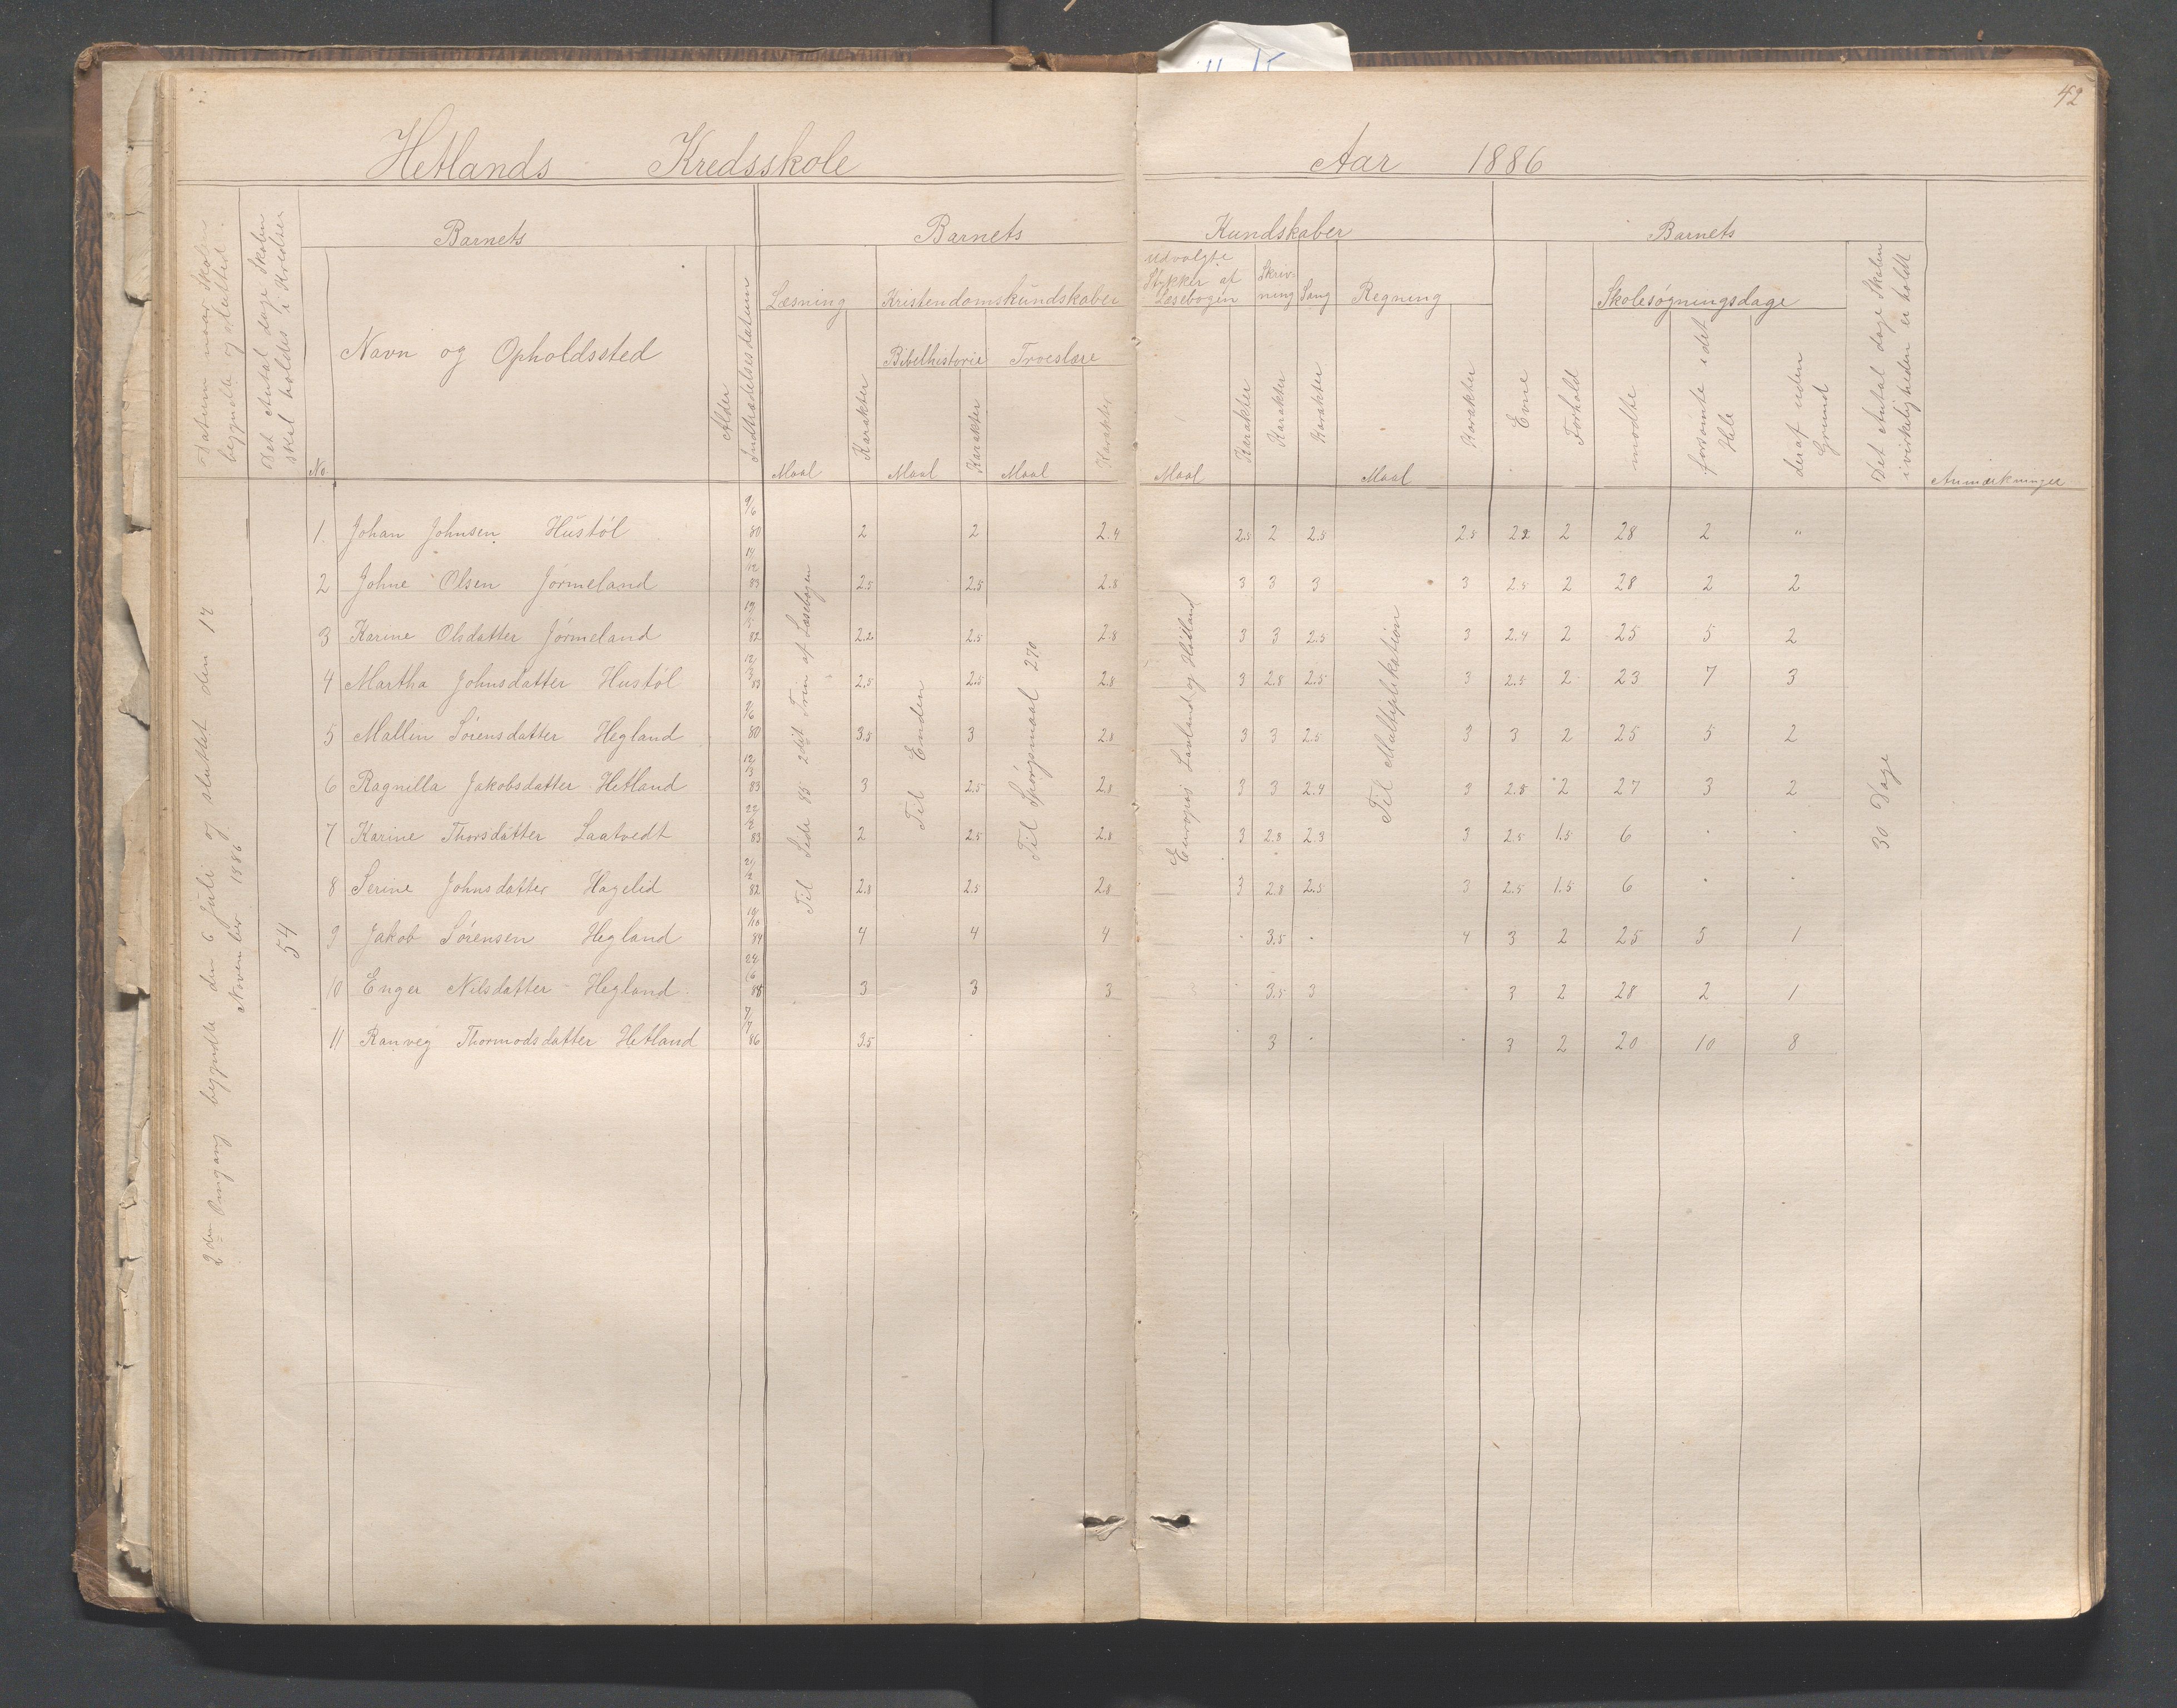 42
Hetlands Kredsskole Aar 1886
Datum naar Skolen begyndte og slutted.
Det Antal dage Skolen skal holdes i Kredsen
Barnets
No.
Navn og Opholdssted
Alder
Indtrædelsesdatum
Barnets Kundskaber
Læsning
Maal
Karakter
Kristendomskundskaber
Bibelhistorie
Maal
Karakter
Troeslære
Maal
Karakter
Udvalgte Stykker af Læsebogen
Maal
Karakter
Skrivning
Karakter
Sang
Karakter
Regning
Maal
Karakter
Barnets
Evne
Forhold
Skolesøgningsdage
mødte
forsømte i det Hele
deraf uden Grund
Det Antal dage Skolen i virkeligheden er holdt
Anmærkninger
2den Omgang begyndte den 6 Juli og sluttet den 17 November 1886
54
Til Side 85 2det Trin af Læsebogen
Til Enden
Til Spørgsmaal 270
Europas Lavland og Høiland
Til Multiplikation
30 Dage
1. Johan Johnsen Hustøl 9/6 80 2 2 2.4 2.5 2 2.5 2.5 2.2 2 28 2 "
2 Johne Olsen Jørmeland 14/12 83 2.5 2.5 2.8 3 3 3 3 2.5 2 28 2 2
3 Karine Olsdatter Jørmeland 82 2.2 2.5 2.8 3 3 2.5 3 2.4 2 25 5 2
4 Martha Johnsdatter Hustøl 12/3 83 2.5 2.5 2.8 3 2.8 2.5 3 2.5 2 23 7 3
5 Mallin Sørensdatter Hegland 80 3.5 3 2.8 3 3 2.5 3 3 2 25 5 2
6 Ragnilla Jakobsdatter Hetland 12/3 83 3 2.5 2.8 3 3 2.4 3 2.5 2 27 3 2
7 Karine Thorsdatter Laatvedt 83 2 2.5 2.8 3 2.8 2.3 3 2.5 1.5 6 . .
8 Serine Johnsdatter Hagelid 82 2.8 2.5 2.8 3 2.8 2.5 3 2.5 1.5 6 . .
9 Jakob Sørensen Hegland 19/10 84 4 4 4 . 3.5 . 4 3 2 25 5 1
10 Enger Nilsdatter Hegland 3 3 3 . 3.5 3 . 3 2 28 2 1
11 Ranveg Thormodsdatter Hetland 7/7 86 3.5 . . . 3 . . 3 2 20 10 8